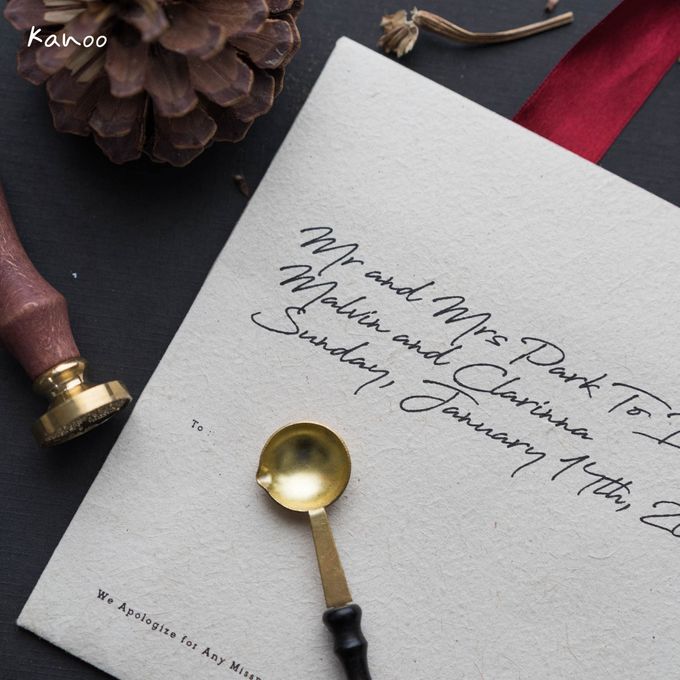 Kanoo
Mr and Mrs Park To
Malvin and Clarinna
Sunday, January 14th, 20
To :
We Apologize for Any